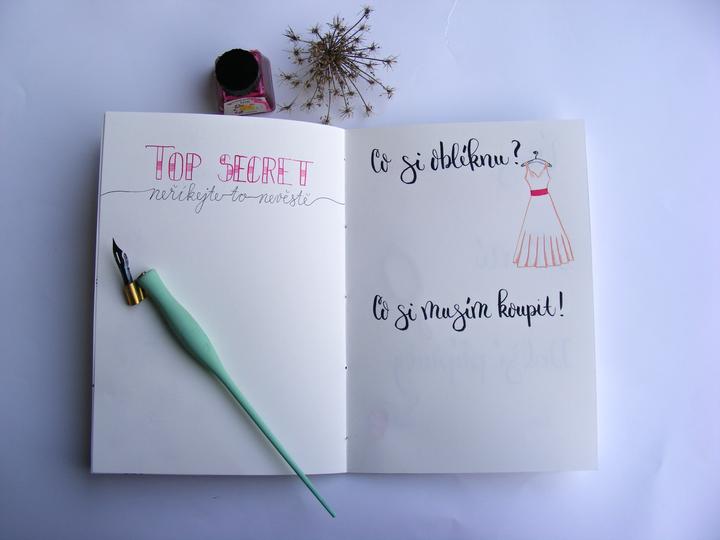 TOP SECRET
neříkejte to nevěstě
Co si obléknu?
Co si musím koupit!